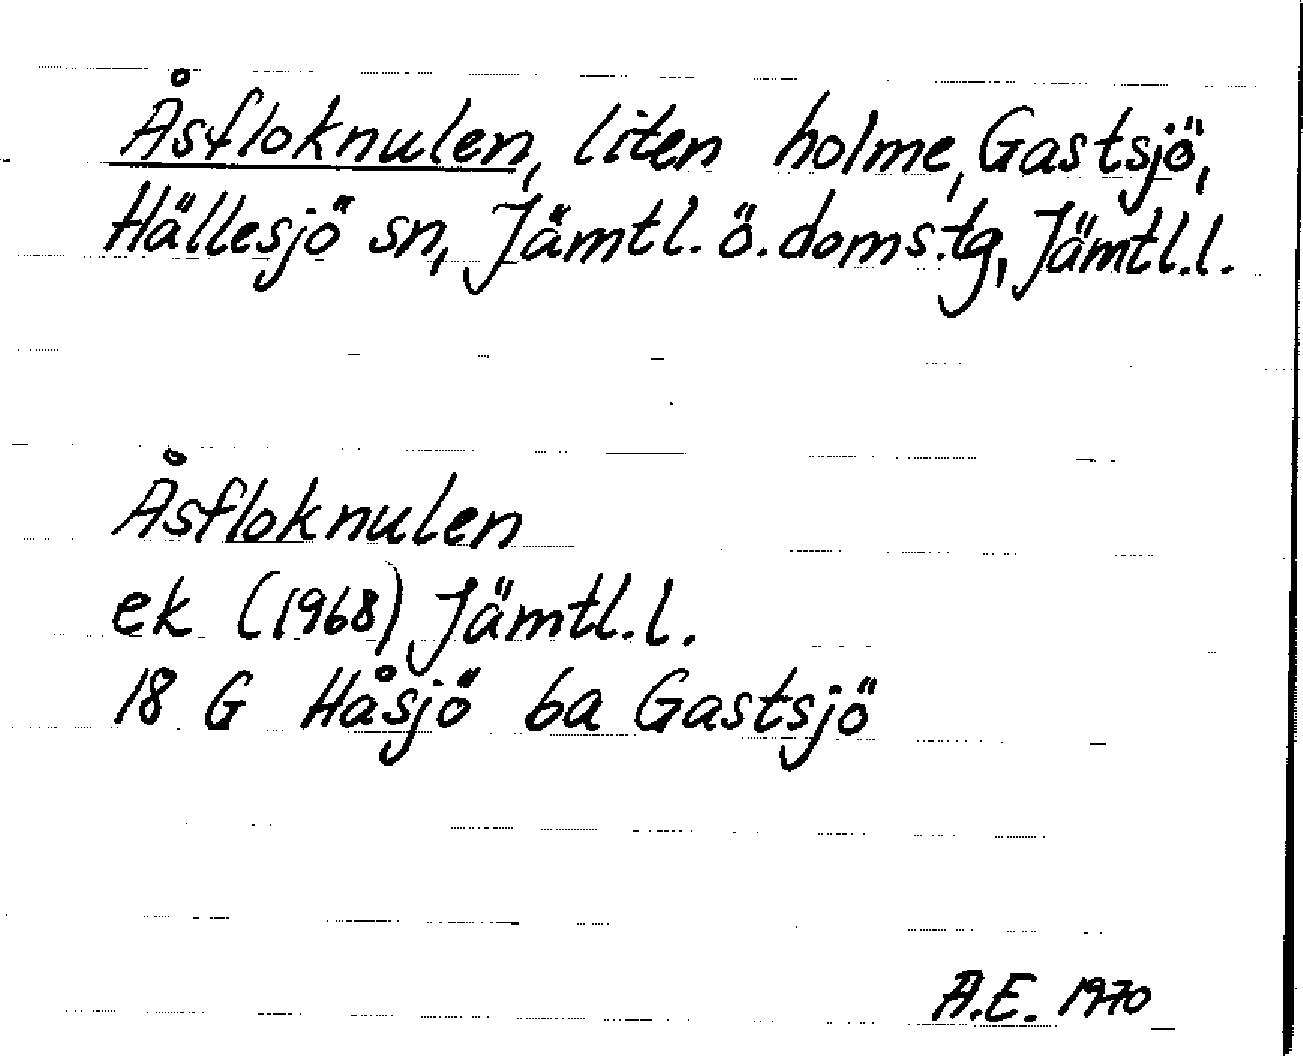 Åsfloknulen, liten holme, Gastsjö,
Hällesjö sn, Jämtl. ö. doms.tg, Jämtl.l.
Åsfloknulen
ek (1968) Jämtl.l.
18 G Håsjö 6a Gastsjö
A.E. 1970